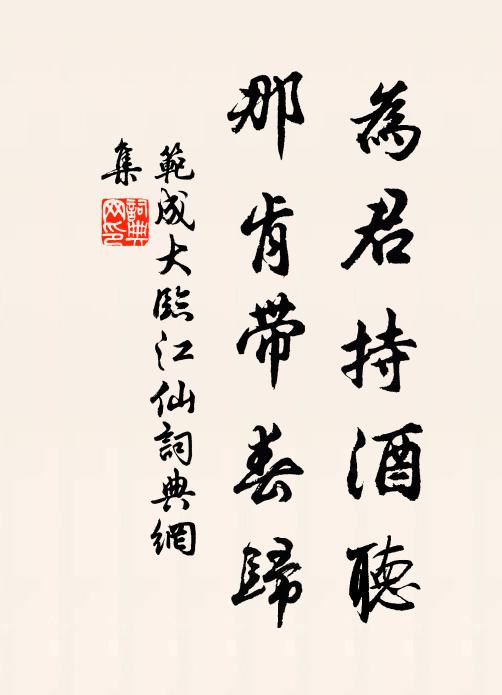 為君持酒聽
那肯带春歸
範成大臨江仙詞典網
集
詞典網印